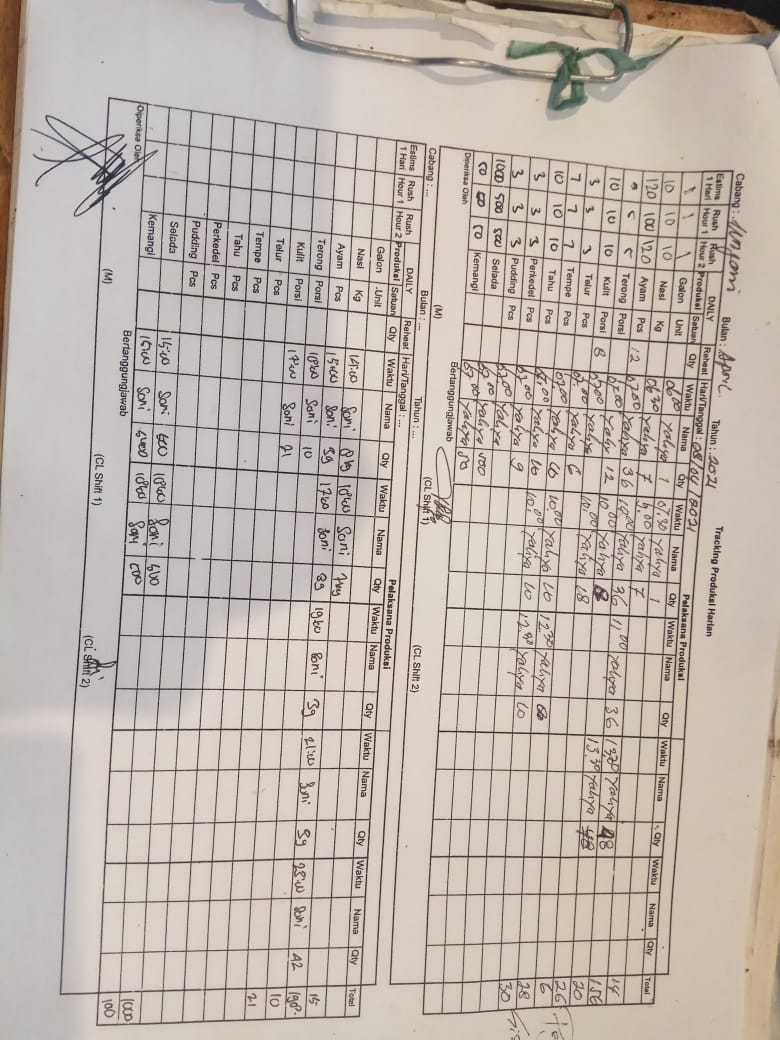 Tracking Produksi Harian
Cabang : Bulan : April Tahun : 2021
Estims 1 Hari Rush Hour 1 Rush Hour 2 DAILY Produksi Satuan Reheat Qty Hari/Tanggal : 08/04/2021 Pelaksana Produksi
Waktu Nama Qty Waktu Nama Qty Waktu Nama Qty Waktu Nama Qty Waktu Nama Qty Total
1 1 1 Galon Unit 06.00 Yahya 1 07.30 Yahya 1
10 10 10 Nasi Kg 06.30 Yahya 7 9.00 Yahya 7 14
120 100 120 Ayam Pcs 12 07.00 Yahya 36 10.00 Yahya 36 11.00 Yahya 36 13.20 Yahya 48 156
Terong Porsi
10 10 10 Kulit Porsi 8 07.00 Yahya 12 10.00 Yahya 8 13.30 Yahya 20
3 3 3 Telur Pcs 07.00 Yahya 10.00 Yahya 18
7 7 7 Tempe Pcs 07.00 Yahya 6 6
10 10 10 Tahu Pcs 07.00 Yahya 10 10.00 Yahya 10 12.30 Yahya 28
3 3 3 Perkedel Pcs 07.00 Yahya 10 10.00 Yahya 10 12.30 Yahya 10 30
3 3 3 Pudding Pcs 07.00 Yahya 9
1000 500 500 Selada 07.00 Yahya 500
50 50 50 Kemangi 07.00 Yahya 50
Diperiksa Oleh Bertanggungjawab
(M) (CL Shift 1) (CL Shift 2)
Cabang : ... Bulan : ... Tahun : ...
Estims 1 Hari Rush Hour 1 Rush Hour 2 DAILY Produksi Satuan Reheat Qty Hari/Tanggal : ... Pelaksana Produksi
Waktu Nama Qty Waktu Nama Qty Waktu Nama Qty Waktu Nama Qty Waktu Nama Qty Total
Galon Unit
Nasi Kg 14:00 Soni 8kg 18:00 Soni 7kg 15
Ayam Pcs 15:00 Soni 39 17:00 Soni 39 19:00 Soni 39 21:00 Soni 39 Soni 42
Terong Porsi 18:00 Soni 10 10
Kulit Porsi 17:00 Soni 21 21
Telur Pcs
Tempe Pcs
Tahu Pcs
Perkedel Pcs
Pudding Pcs
Selada 15:00 Soni 500 18:00 Soni 500 1000
Kemangi 15:00 Soni Soni 100
Diperiksa Oleh Bertanggungjawab
(M) (CL Shift 1) (CL Shift 2)